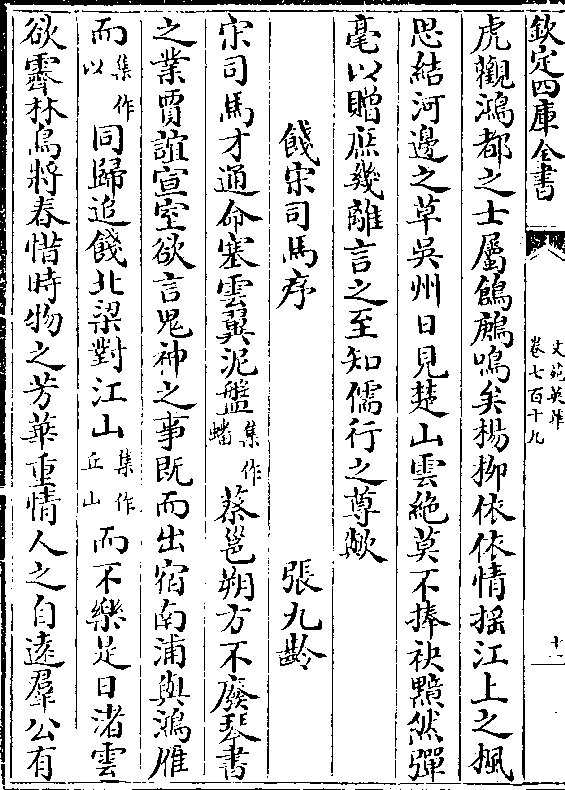 欽定四庫全書
文苑英華
卷七百十九
十一
虎觀鴻都之士屬鶬鶊鳴矣楊柳依依情搖江上之楓
思結河邊之草吳州日見楚山雲絶莫不捧袂黯然彈
毫以贈庶幾離言之至知儒行之尊歟
餞宋司馬序
張九齡
宋司馬才通命塞雲翼泥盤集作蟠蔡邕朔方不廢琴書
之業賈誼宣室欲言鬼神之事既而出宿南浦與鴻雁
而集作以同歸追餞北梁對江山集作丘山而不樂是日渚雲
欲霽林鳥將春惜時物之芳華重情人之自遠羣公有